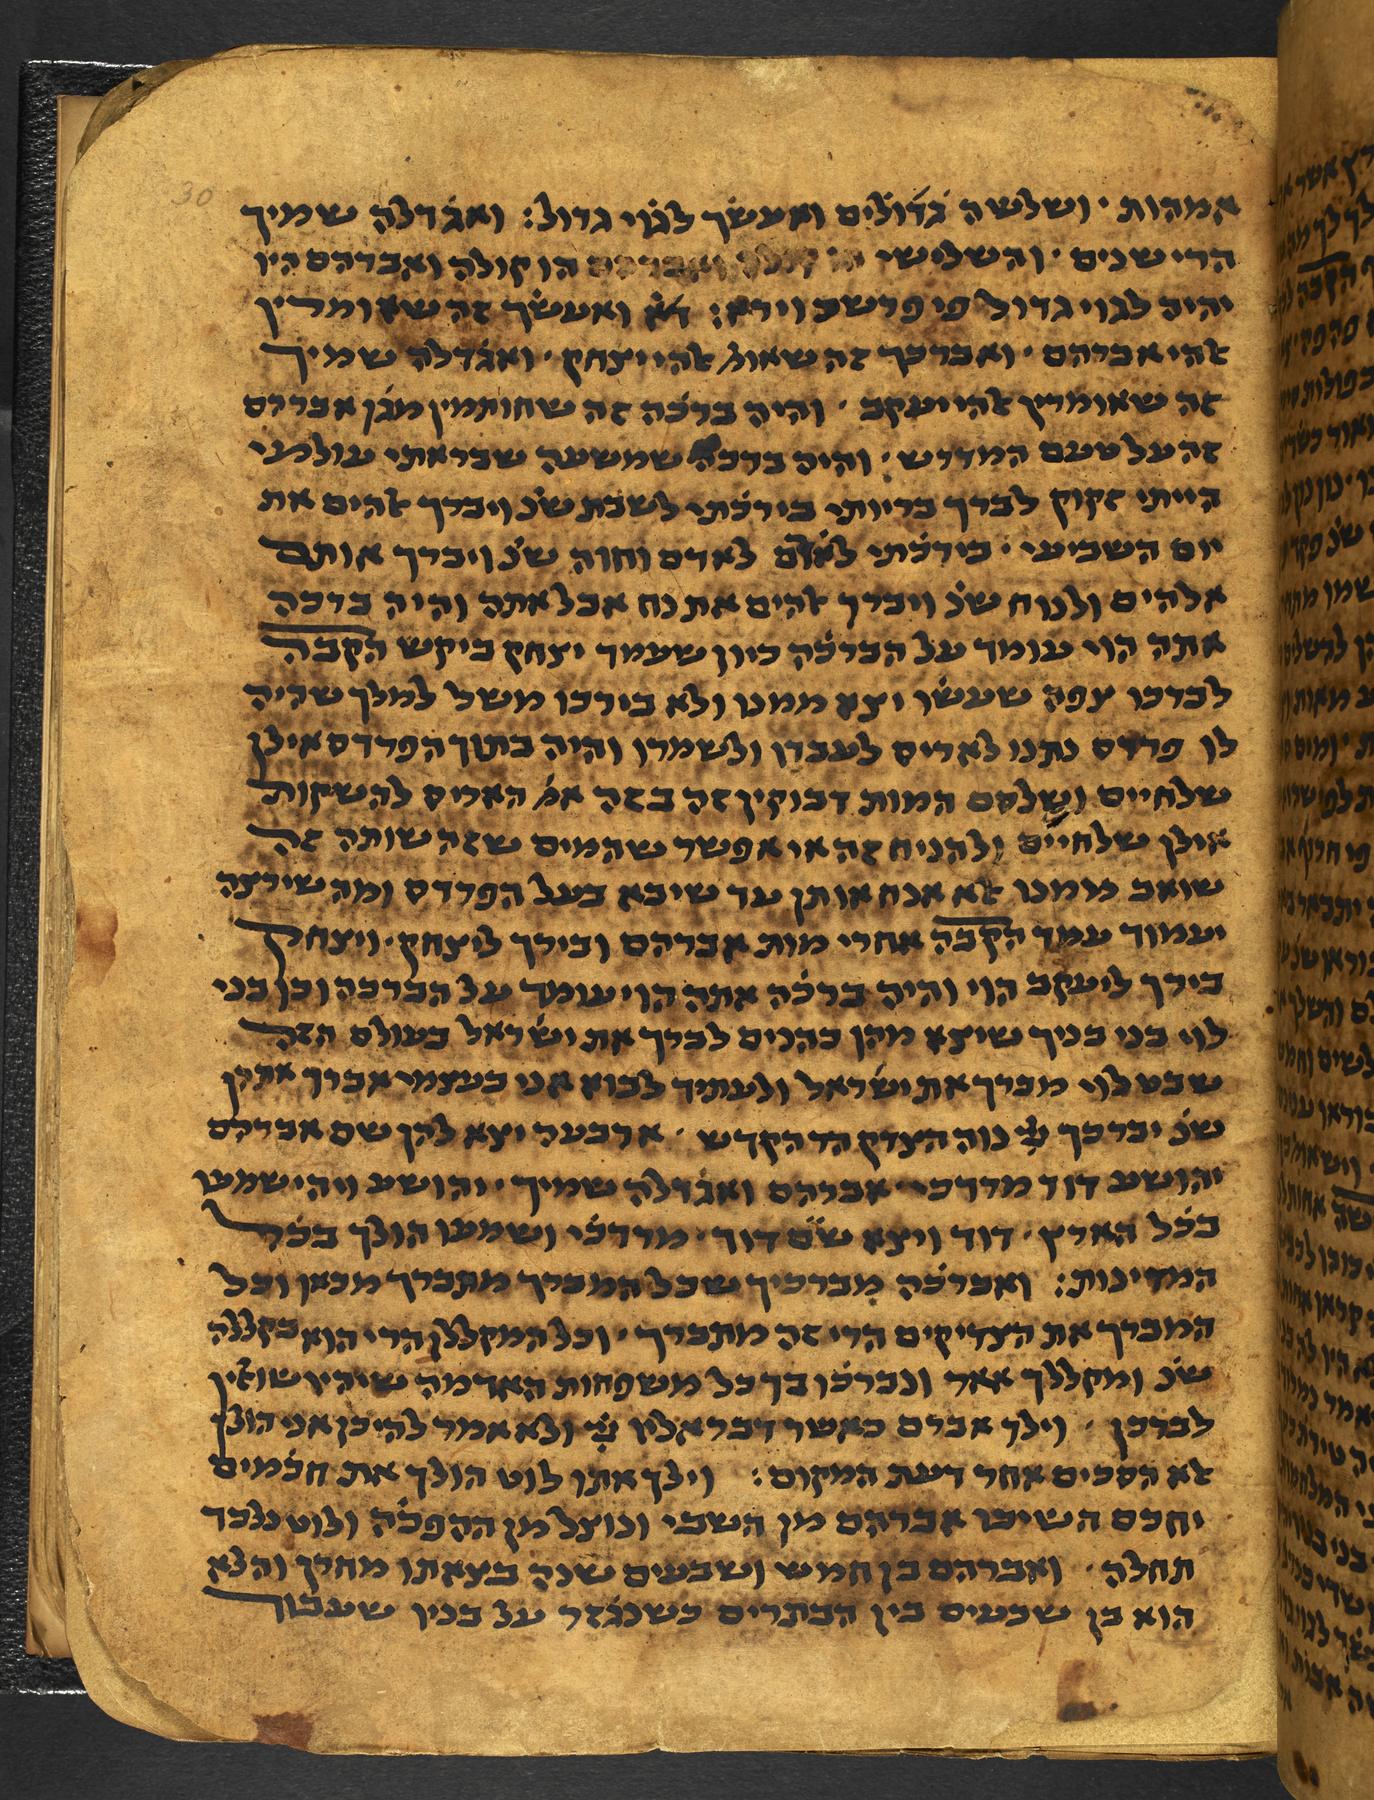 30
אמהות · ושלשה גדולים ואעשך לגוי גדול: ואגדלה שמיך
הרי שנים · והשלישי הו קולה ואברהם היו
יהיה לגוי גדול פי פרשת וירא: דא ואעשך זה שאומרין
להי אברהם · ואברכך זה שאומ׳ להי יצחק · ואגדלה שמיך
זה שאומרין להי יעקב · והיה ברכה זה שחותמין מגן אברהם
זה על טעם המדרש · והיה ברכה שמשעה שבראתי עולמי
הייתי זקוק לברך בריותי בירכתי לשבת שנ׳ ויברך להים את
יום השביעי · בירכתי לאדם וחוה שנ׳ ויברך אותם
אלהים ולנוח שנ׳ ויברך להים את נח אבל אתה והיה ברכה
אתה הוי עומד על הברכה כיון שעמד יצחק ביקש הקבה
לברכו צפה שעשו יצא ממנו ולא בירכו משל למלך שהיה
לו פרדס נתנו לאריס לעבדו ולשמרו והיה בתוך הפרדס אילן
שלחיים ושלסם המות דבוקין זה בזה אמ׳ האריס להשקות
אילן שלחיים ולהניח זה אי אפשר שהמים שזה שותה זה
שואב ממנו לא אנח אותן עד שיבא בעל הפרדס ומה שירצה
יעמוד עמד הקבה אחרי מות אברהם ובירך ליצחק · ויצחק
בירך ליעקב הוי והיה ברכה אתה הוי עומד על הברכה וכן בני
לוי בני בניך שיצא מהן כהנים לברך את ישראל בעולם הזה
שבט לוי מברך את ישראל ולעתיד לבוא אני בעצמי אברך אתכן
שנ׳ יברכך נוה הצדק הר הקדש · ארבעה יצא להן שם אברהם
יהושע דוד מרדכי אברהם ואגדלה שמיך · יהושע ויהי שמעו
בכל הארץ · דוד ויצא שם דוד · מרדכי ושמעו הולך בכל
המדינות: ואברכה מברכיך שכל המברך מתברך מכאן וכל
המברך את הצדיקים הרי זה מתברך · וכל המקללן הרי הוא בקללה
שנ׳ ומקללך אאר ונברכו בך כל משפחות האדמה שיהיו
לברכן · וילך אברם כאשר דבר אליו ולא אמר להיכן אני הולך
לא הסכים אחר דעת המקום: וילך אתו לוט הולך את חכמים
יחכם השיבו אברהם מן השבי ונוצל מן ההפכה ולוט נלכד
תחלה · ואברהם בן חמש ושבעים שנה בצאתו מחרן והלא
הוא בן שבעים בין הבתרים כשנגזר על בניו שעבוד